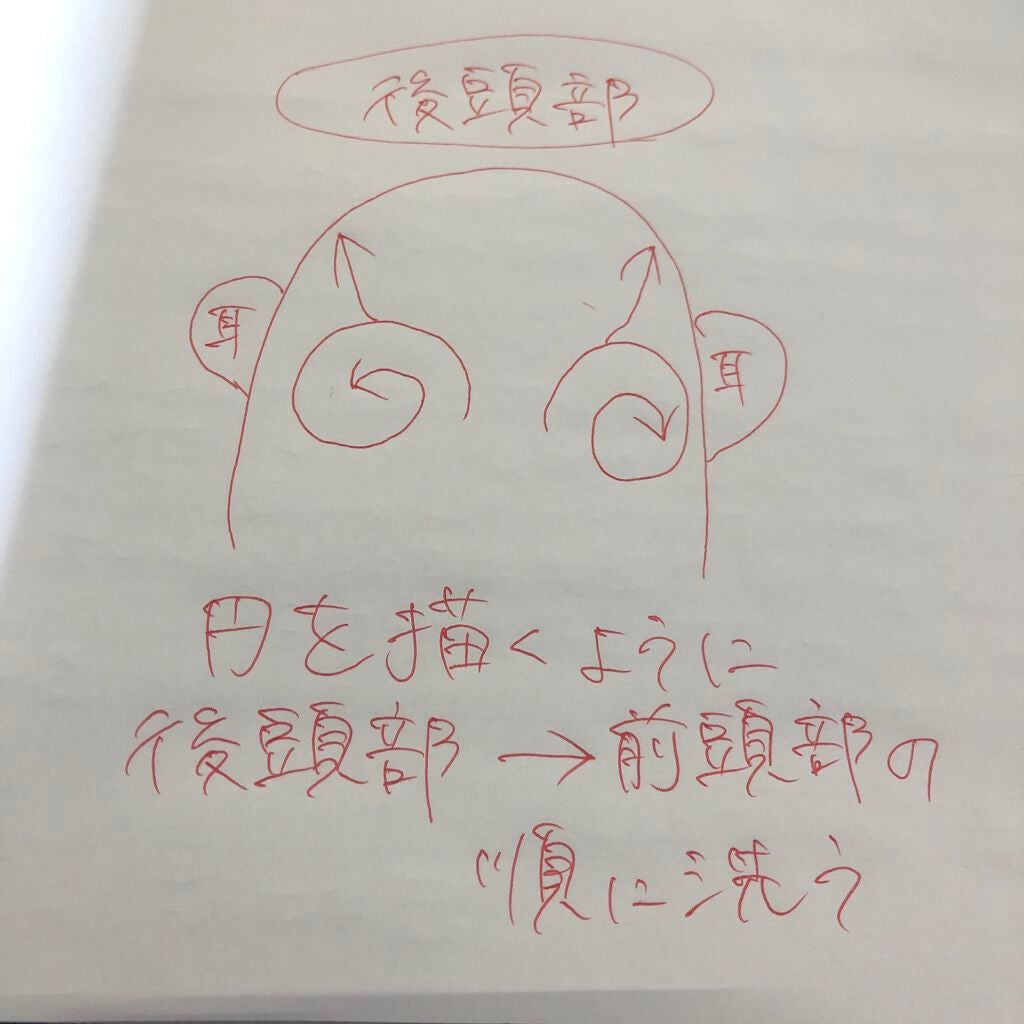 後頭部
耳
耳
円を描くように
後頭部→前頭部の
順に洗う